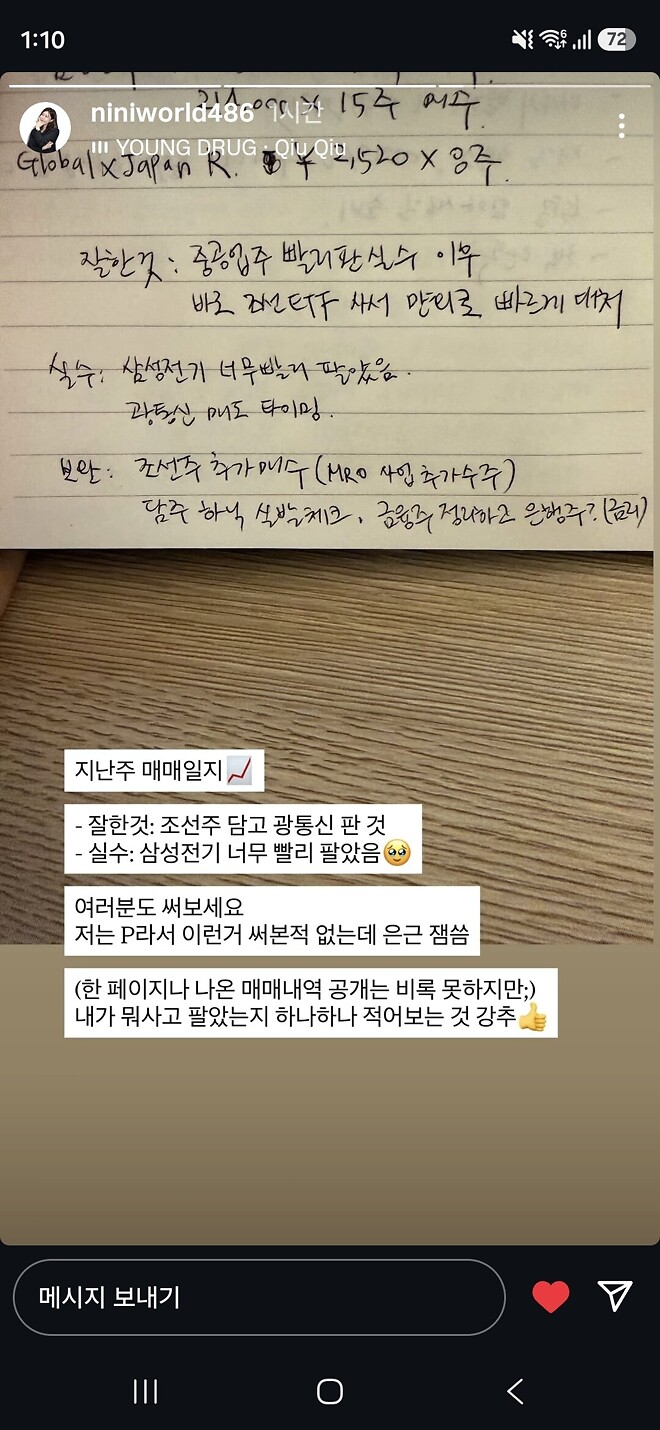 1:10
72
× 15주 매수.
niniworld486 1시간
YOUNG DRUG · Qiu Qiu
Global x Japan R. ¥ 2,520 ×
잘한것: 중공업주 빨리판실수 이후
바로 조선ETF 사서 만회로 빠르게 대처
실수: 삼성전기 너무빨리 팔았음.
광통신 매도 타이밍.
보완: 조선주 추가매수 (MRO 사업 추가수주)
담주 하닉 실발체크, 금융주 정리하고 은행주? (금리)
지난주 매매일지📈
- 잘한것: 조선주 담고 광통신 판 것
- 실수: 삼성전기 너무 빨리 팔았음🥹
여러분도 써보세요
저는 P라서 이런거 써본적 없는데 은근 잼씀
(한 페이지나 나온 매매내역 공개는 비록 못하지만;)
내가 뭐사고 팔았는지 하나하나 적어보는 것 강추👍
메시지 보내기